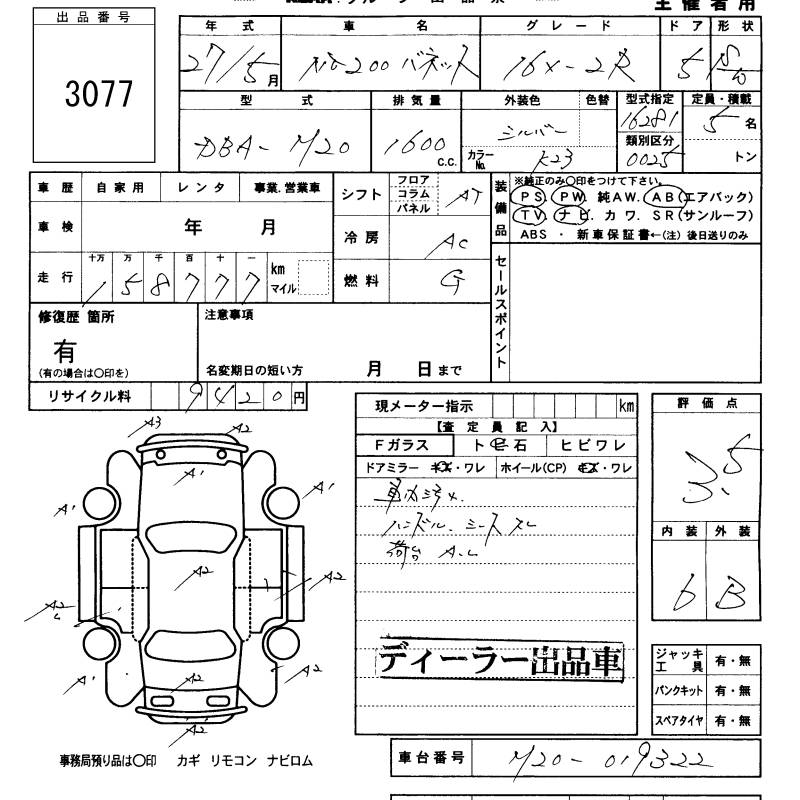 主催者用
出品番号
3077
年式 車名 グレード ドア 形状
27/5月 NV200 バネット 16X-2R 5
型式 排気量 外装色 色替 型式指定 定員・積載
DBA-M20 1600 c.c. シルバー 16281 5名
カラーNo. K23 類別区分 0025 トン
車歴 自家用 レンタ 事業.営業車
シフト フロア コラム パネル AT
装備品
※純正のみ〇印をつけて下さい。
PS. PW. 純AW. AB(エアバック)
TV. ナビ. カワ. SR(サンルーフ)
ABS ・ 新車保証書←(注) 後日送りのみ
車検 年 月
冷房 AC
走行 十万 万 千 百 十 一
158777 km マイル
燃料 G
セールスポイント
修復歴 箇所
有
(有の場合は〇印を)
注意事項
名変期日の短い方 月 日まで
リサイクル料 9420円
現メーター指示 km
【査定員記入】
Fガラス ト石 ヒビワレ
ドアミラー キズ・ワレ ホイール(CP) キズ・ワレ
車内汚れ
ハンドル、シートスレ
荷台 A.U
評価点
3.5
内装 外装
6 B
A3 A2
A1
A1 A1
A2
A2 A2
A1 A2 A2
A2
ディーラー出品車
ジャッキ工具 有・無
パンクキット 有・無
スペアタイヤ 有・無
事務局預り品は〇印 カギ リモコン ナビロム
車台番号 M20-019322